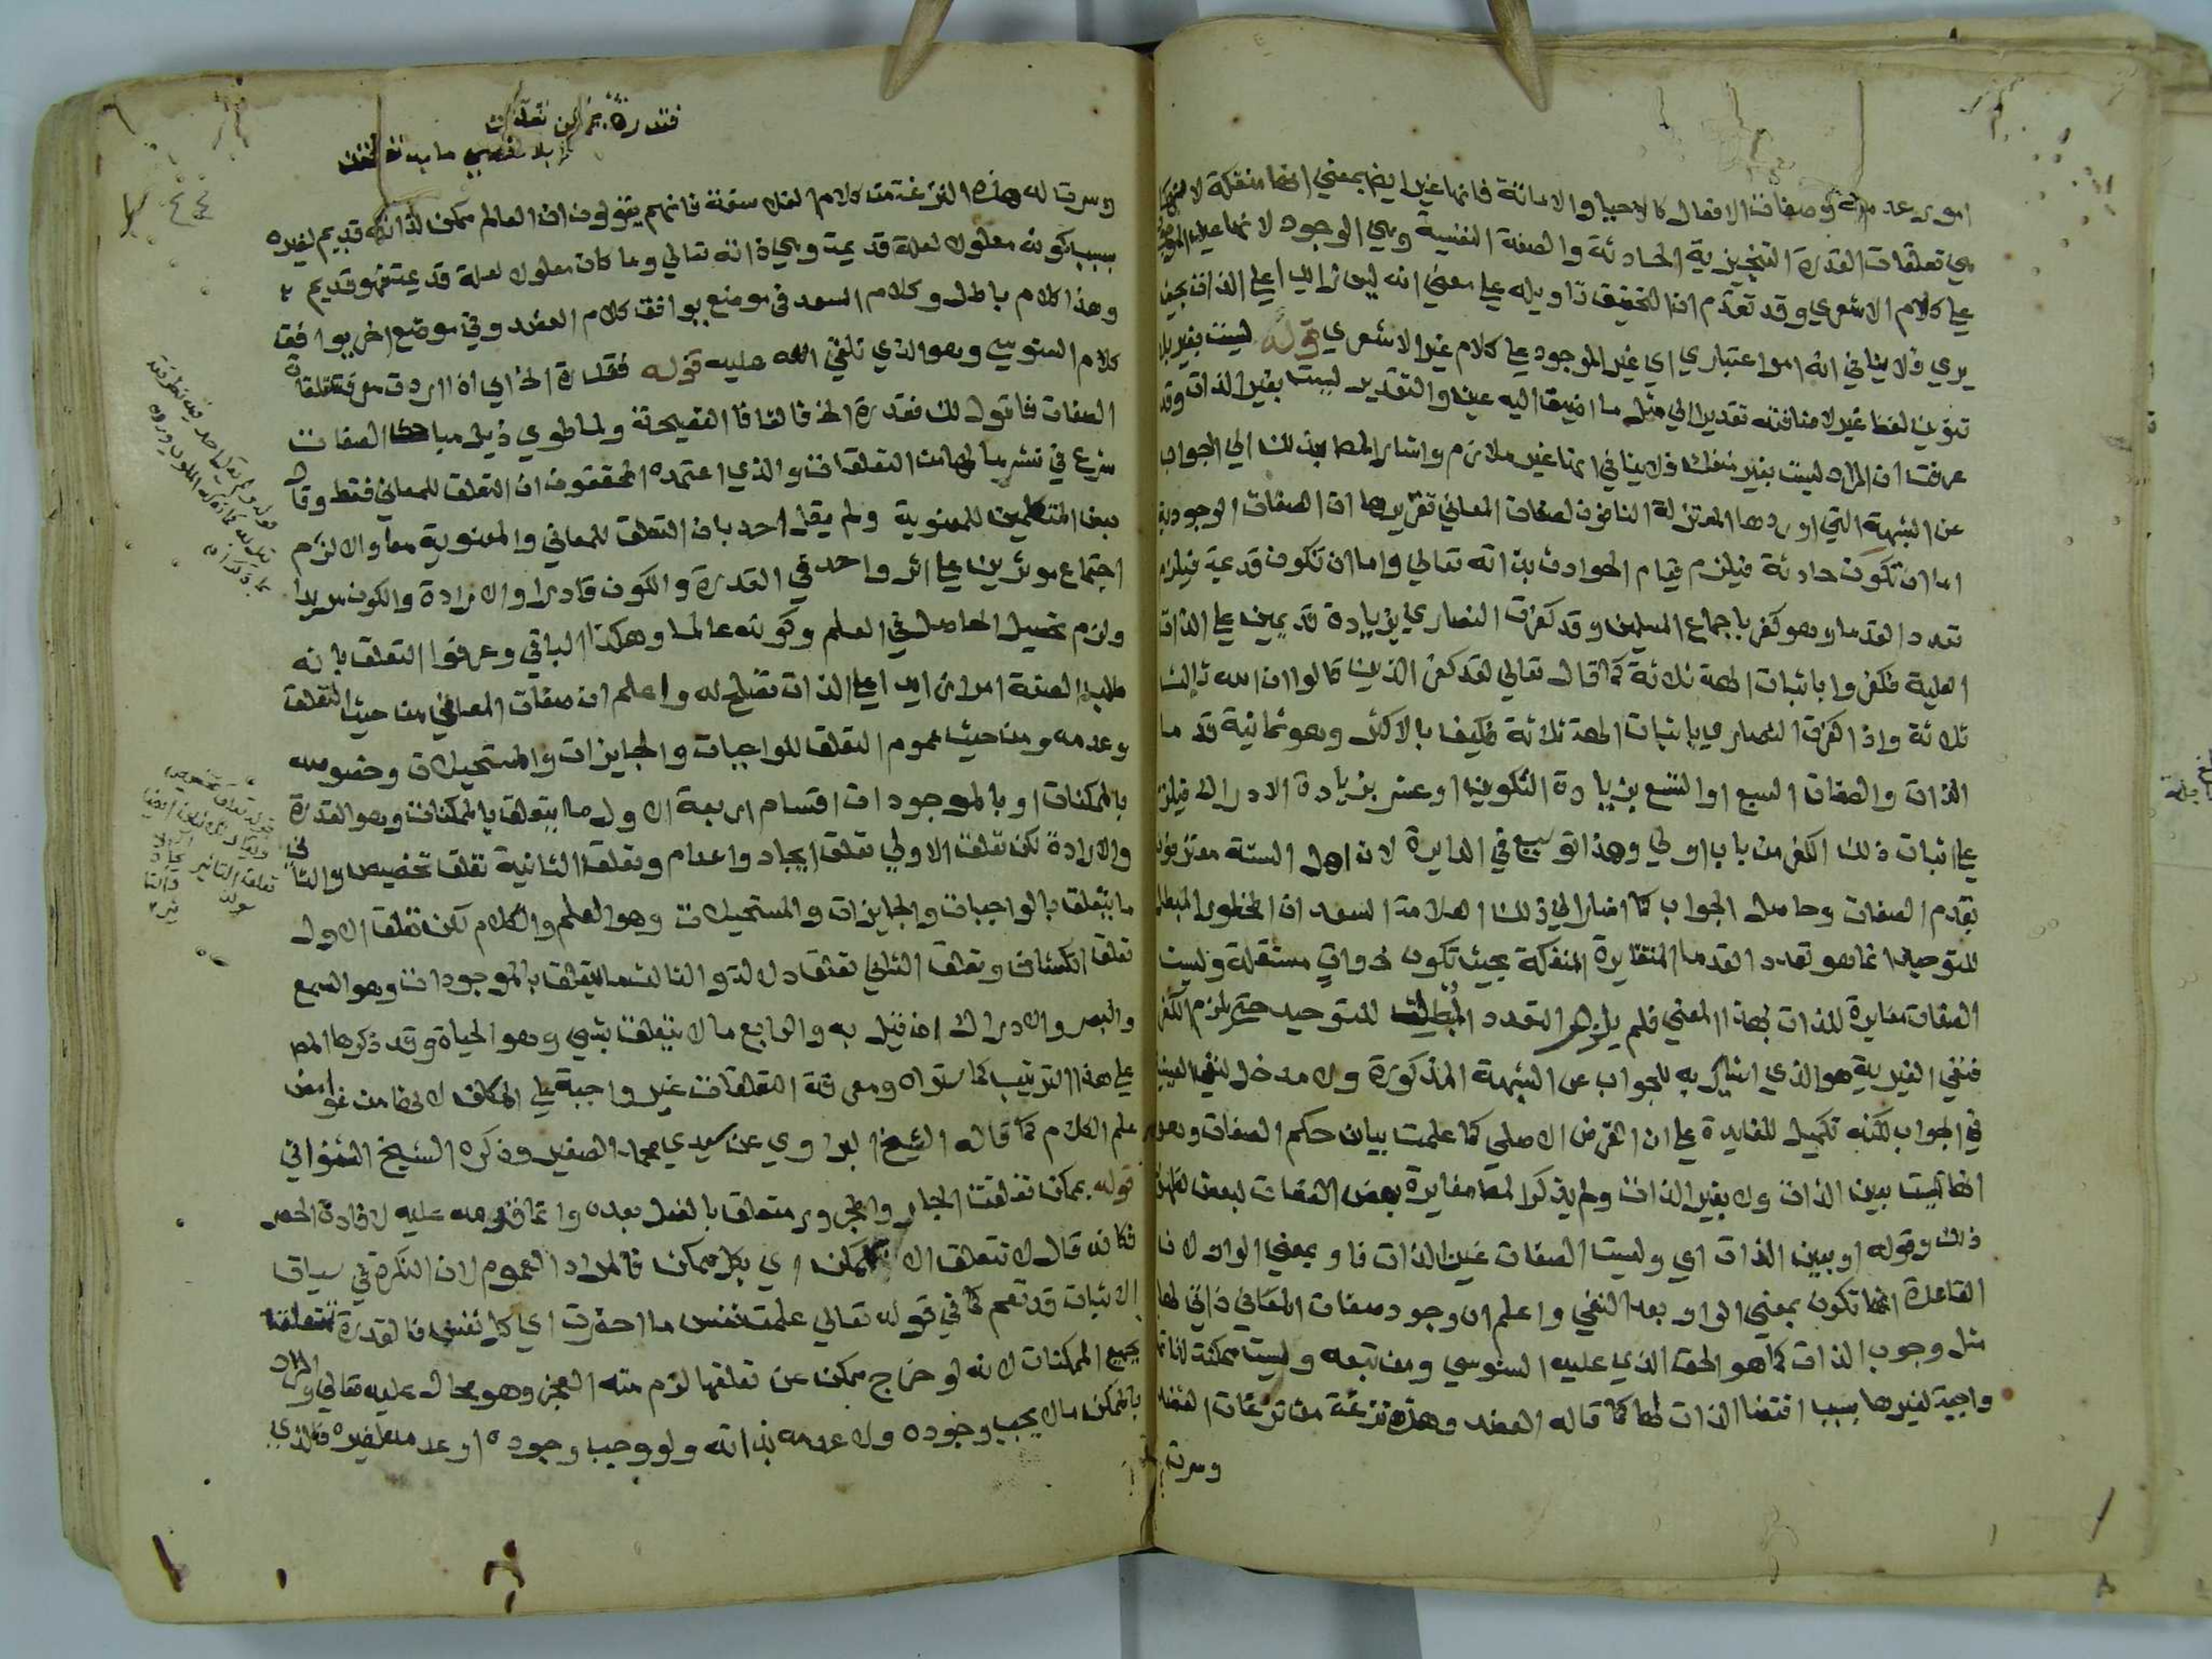 امور عدمية وصفات الافعال كالاحيا والاماتة فانها غير ايضا بمعني انها منفكة لانها
هي تعلقات القدرة التنجيزية الحادثة والصفة النفسية وهي الوجود لانها عين الموجود
علي كلام الاشعري وقد تقدم ان التحقيق تاويله علي معني انه ليس زايدا علي الذات بحيث
يري فلا ينافي انه امر اعتباري اي غير الموجود علي كلام غير الاشعري قوله ليست بغير بلا
تنوين لفظ غير لاضافته تقديرا الي مثل ما اضيف اليه عين والتقدير ليست بغير الذات وقد
عرفت ان المراد ليست بغير منفك فلا ينافي انها غير ملازم واشار المص بذلك الي الجواب
عن الشبهة التي اوردها المعتزلة النافون لصفات المعاني تقريرها ان الصفات الوجودية
اما ان تكون حادثة فيلزم قيام الحوادث بذاته تعالي واما ان تكون قديمة فيلزم
تعدد القدما وهو كفر باجماع المسلمين وقد كفرت النصاري بزيادة قديمين علي الذات
العلية فكفروا باثبات الهة ثلاثة كما قال تعالي لقد كفر الذين قالوا ان الله ثالث
ثلاثة واذا كفرت النصاري باثبات الهة ثلاثة فكيف بالاكثر وهو ثمانية قدما
الذات والصفات السبع او التسع بزيادة التكوين او عشر بزيادة الادراك فيلزم
علي اثبات ذلك الكفر من باب اولي وهذا توسيع في الدايرة لان اهل السنة معترفون
بقدم الصفات وحاصل الجواب كما اشار الي ذلك العلامة السعد ان المحظور المبطل
للتوحيد انما هو تعدد القدما المتغايرة المنفكة بحيث تكون ذوات مستقلة وليست
الصفات مغايرة للذات بهذا المعني فلم يلزم التعدد المبطل للتوحيد حتي يلزم الكفر
فنفي الغيرية هو الذي اشار به للجواب عن الشبهة المذكورة ولا مدخل لنفي العينية
في الجواب لكنه تكميل للفايدة علي ان الغرض الاصلي كما علمت بيان حكم الصفات وهو
انها ليست بعين الذات ولا بغير الذات ولم يذكر المص مغايرة بعض الصفات لبعض لظهور
ذلك وقوله او بعين الذات اي وليست الصفات عين الذات فاو بمعني الواو لان
القاعدة انها تكون بمعني الواو بعد النفي واعلم ان وجود صفات المعاني ذاتي لها
مثل وجوب الذات كما هو الحق الذي عليه السنوسي ومن تبعه وليست ممكنة لذاتها
واجبة لغيرها بسبب اقتضا الذات لها كما قاله العضد وهذه نزغة من نزغات العضد
وسرت
فقدرة بممكن تعلقت
بلا تناهي ما به تعلقت
وسرت له هذه النزغة من كلام الفلاسفة فانهم يقولون ان العالم ممكن لذاته قديم لغيره
بسبب كونه معلولا لعلة قديمة وهي ذاته تعالي وما كان معلولا لعلة قديمة فهو قديم
وهذا كلام باطل وكلام السعد في موضع يوافق كلام العضد وفي موضع اخر يوافق
كلام السنوسي وهو الذي نلقي الله عليه قوله فقدرة الخ اي اذا اردت معرفة تعلقات
الصفات فاقول لك فقدرة الخ فالفا فا الفصيحة ولما طوي ذيل مباحث الصفات
شرع في نشر ما لها من التعلقات والذي اعتمده المحققون ان التعلق للمعاني فقط وقال
بعض المتكلمين للمعنوية ولم يقل احد بان التعلق للمعاني والمعنوية معا والا لزم
اجتماع موثرين علي اثر واحد في القدرة والكون قادرا والارادة والكون مريدا
ولزم تحصيل الحاصل في العلم وكونه عالما وهكذا الباقي وعرفوا التعلق بانه
طلب الصفة امرا زايدا علي الذات تصلح له واعلم ان صفات المعاني من حيث التعلق
وعدمه ومن حيث عموم التعلق للواجبات والجايزات والمستحيلات وخصوصه
بالممكنات او بالموجودات اقسام اربعة الاول ما يتعلق بالممكنات وهو القدرة
والارادة لكن تعلق الاولي تعلق ايجاد واعدام وتعلق الثانية تعلق تخصيص والثاني
ما يتعلق بالواجبات والجايزات والمستحيلات وهو العلم والكلام لكن تعلق الاول
تعلق انكشاف وتعلق الثاني تعلق دلالة والثالث ما يتعلق بالموجودات وهو السمع
والبصر والادراك ان قيل به والرابع ما لا يتعلق بشي وهو الحياة وقد ذكرها المص
علي هذا الترتيب كما ستراه ومعرفة التعلقات غير واجبة علي المكلف لانها من غوامض
علم الكلام كما قاله الشيخ البراوي عن سيدي محمد الصغير وذكره الشيخ الشنواني
قوله بممكن تعلقت الجار والمجرور متعلق بالفعل بعده وانما قدمه عليه لافادة الحصر
فكانه قال لا تتعلق الا بممكن اي بكل ممكن فالمراد العموم لان النكرة في سياق
الاثبات قد تعم كما في قوله تعالي علمت نفس ما احضرت اي كل نفس فالقدرة متعلقة
بجميع الممكنات لانه لو خرج ممكن عن تعلقها لزم منه العجز وهو محال عليه تعالي والمراد
بالممكن ما لا يجب وجوده ولا عدمه لذاته ولو وجب وجوده او عدمه لغيره فالذي